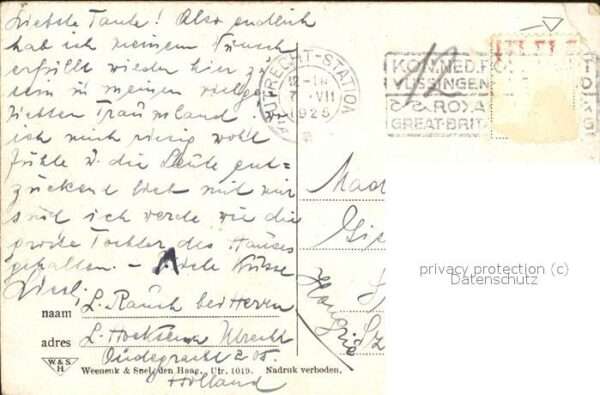 Liebste Tante! Also endlich
hab ich meinen Wunsch
erfüllt wieder hier zu
sein in meinem vielge
liebten Traumland.
ich mich riesig wohl
fühle u. die Leute ent=
zückend lieb mit mir
sind ich werde wie die
große Tochter des Hauses
gehalten. – Viele Küsse
Liesl.
naam L. Rauch bei Herrn
adres L. Hoeksema Utrecht
Oudegracht 205.
Holland
W.& S.
H.
Weenenk & Snel, den Haag, Utr. 1019. Nadruk verboden.
UTRECHT-STATION
12-1N
7 VII
1926
KON. NED.
VLISSINGEN
ROYA
GREAT-BRIT
Mad
Hongrie
privacy protection (c)
Datenschutz